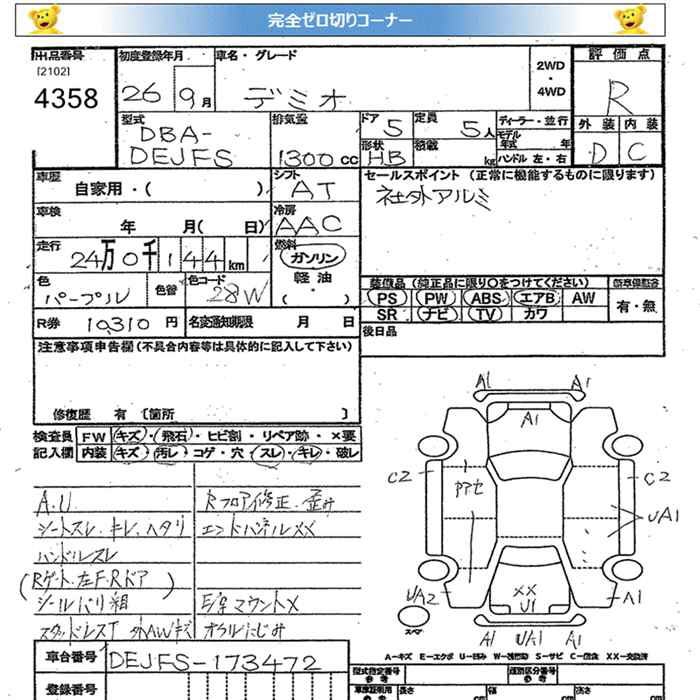 完全ゼロ切りコーナー
出品番号
[2102]
4358
初度登録年月
26 9月
車名・グレード
デミオ
2WD
・
4WD
評価点
R
外装 内装
D C
型式
DBA-
DEJFS
排気量
1300cc
ドア
5
定員
5人
形状
HB
積載
kg
ディーラー・並行
モデル
年式 年
ハンドル 左・右
車歴
自家用・( )
シフト
AT
セールスポイント (正常に機能するものに限ります)
社外アルミ
車検
年 月( 日)
冷房
AAC
走行
24万0千144km
燃料
ガソリン
軽油
・
( )
色
パープル
色替
色コード
28W
装備品 (純正品に限り○をつけてください)
PS PW ABS エアB AW
SR ナビ TV カワ
新車保証書
有・無
R券 10,310円
名変通知期限 月 日
後日品
注意事項申告欄(不具合内容等は具体的に記入して下さい)
修復歴 有 〔箇所 〕
検査員
記入欄
FW キズ・飛石・ヒビ割・リペア跡・×要
内装 キズ・汚レ・コゲ・穴・スレ・キレ・破レ
A.U
シートスレ、キレ、ヘタリ
ハンドルスレ
(Rゲート、左F・Rドア)
シールバリ粗
スタッドレスT 外AWキズ
Rフロア修正、歪み
エンドパネルXX
E/g マウントX
オイルにじみ
A1 A1
A1
C2 C2
UA1
UA2 A1
XX
U1
スペア
A1 UA1 A1
A-キズ E-エクボ U-凹み W-波打ち S-サビ C-腐食 XX-交換済
車台番号 DEJFS-173472
登録番号
型式指定番号
参考
類別区分番号
参考
車庫証明用
参考
長さ cm
幅 cm
高さ cm